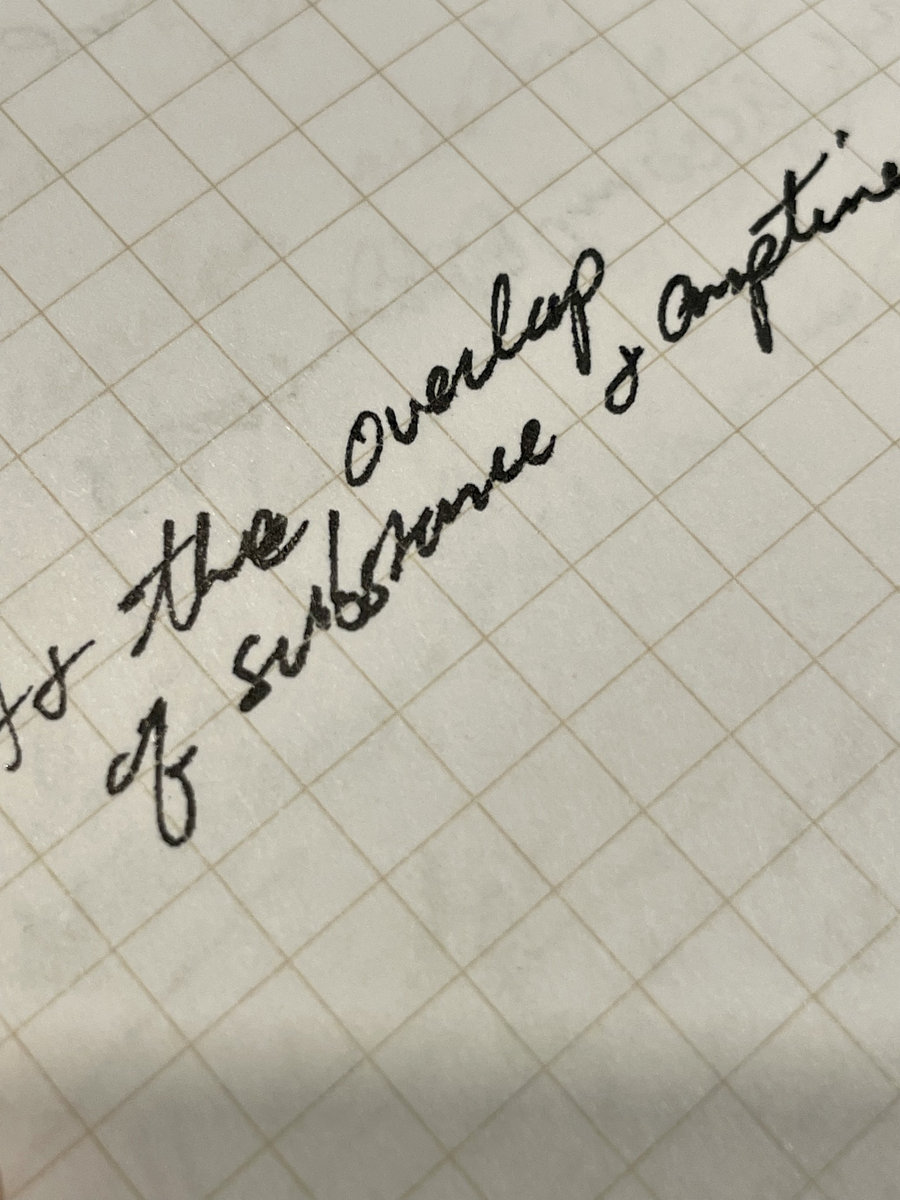 the overlap
of substance & emptine